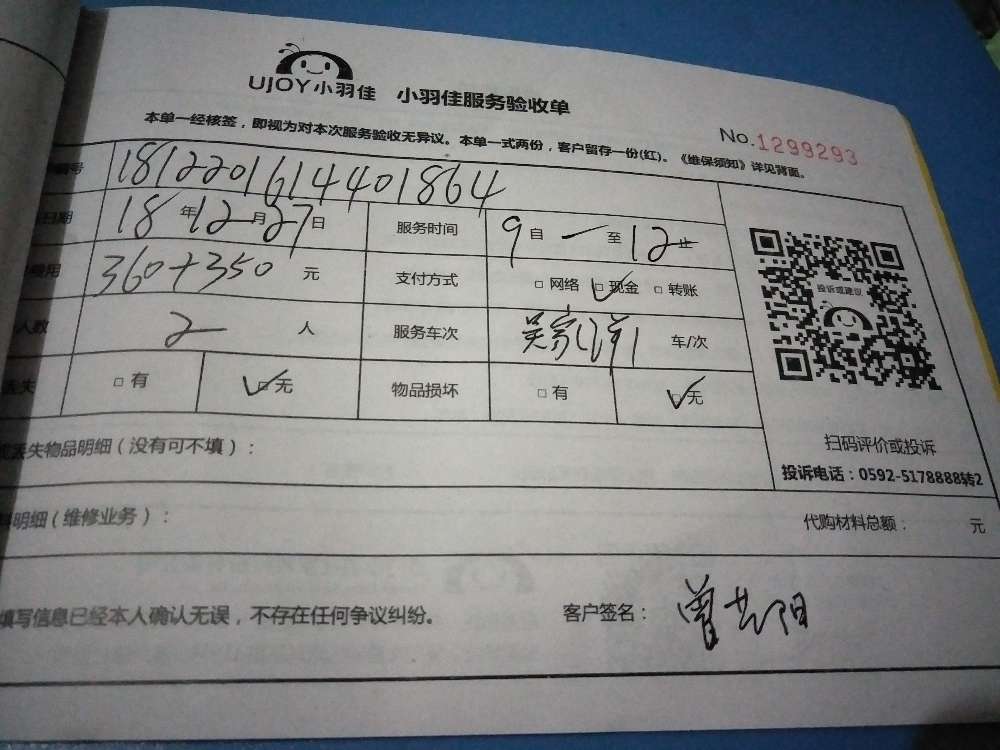 UJOY小羽佳 小羽佳服务验收单
本单一经核签，即视为对本次服务验收无异议。本单一式两份，客户留存一份(红)。《维保须知》详见背面。
No.1299293
编号 181220161440 1864
日期 18 年 12 月 27 日 服务时间 9 自 一 至 12 止
费用 360+350 元 支付方式 □ 网络 ☑ 现金 □ 转账
人数 2 人 服务车次 车/次
丢失 □ 有 ☑ 无 物品损坏 □ 有 ☑ 无
投诉或建议
扫码评价或投诉
投诉电话：0592-5178888转2
丢失物品明细（没有可不填）：
明细（维修业务）： 代购材料总额： 元
填写信息已经本人确认无误，不存在任何争议纠纷。 客户签名： 曾